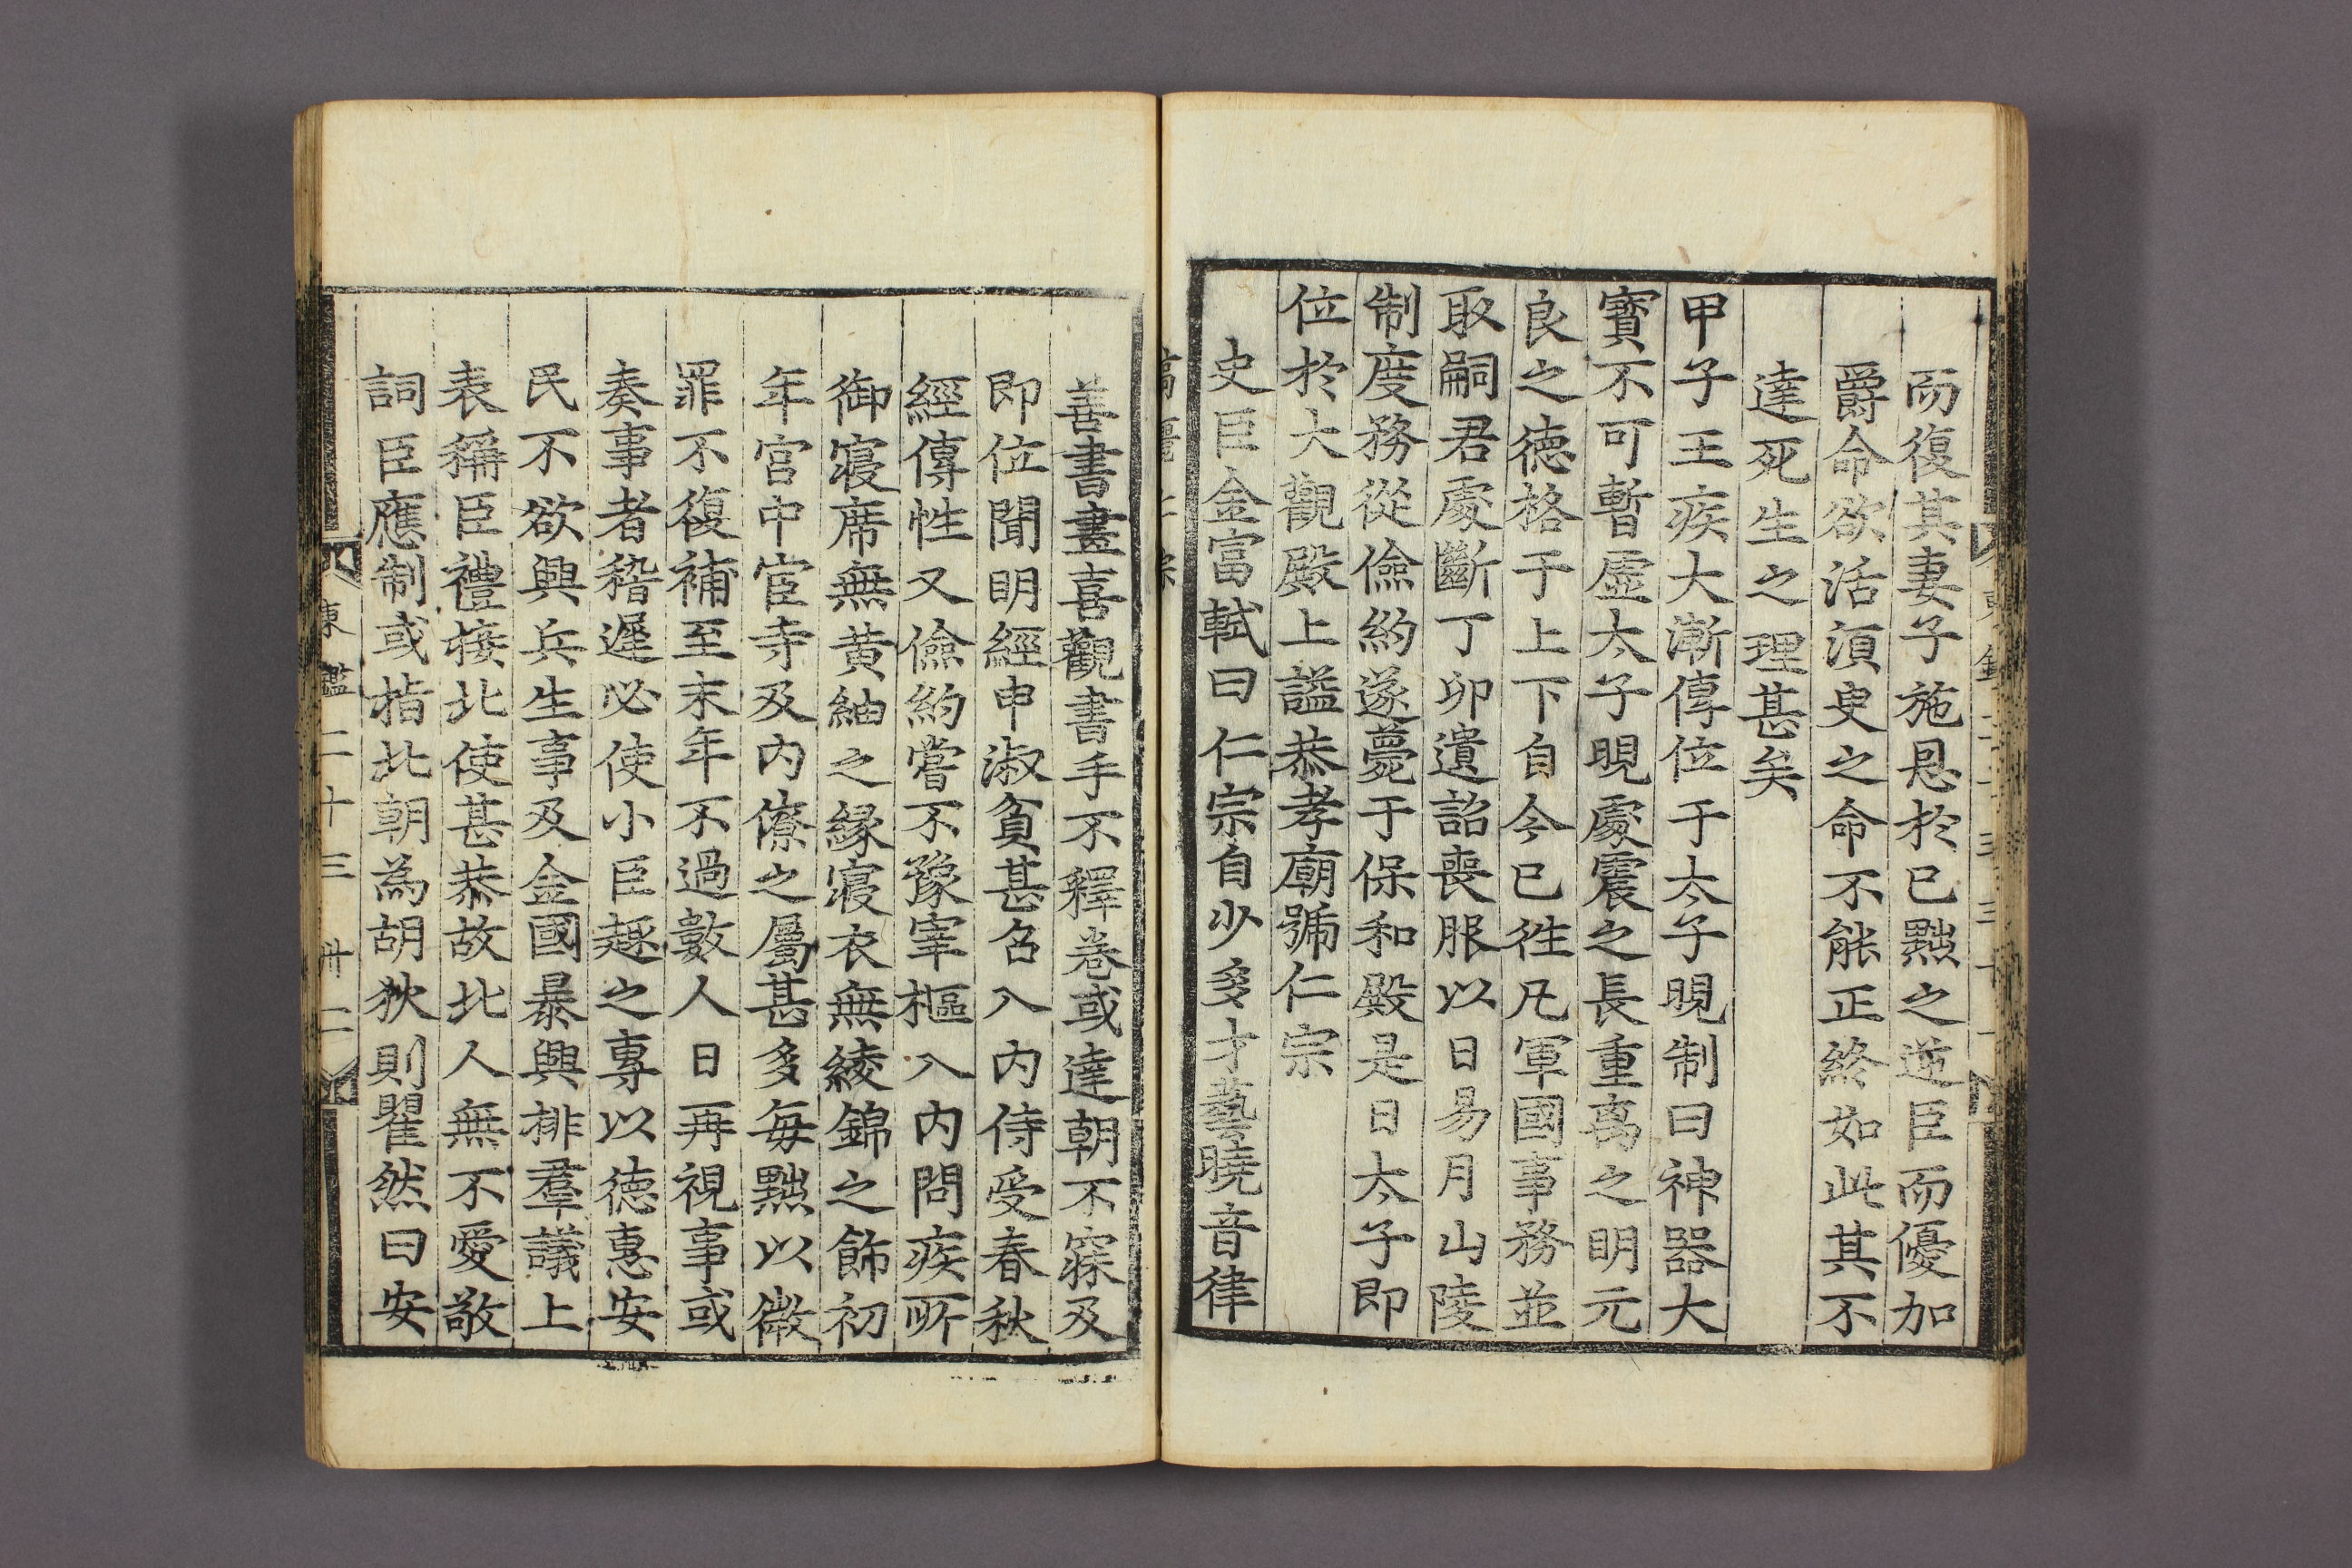 而復其妻子施恩於已黜之逆臣而優加
爵命欲活須臾之命不能正終如此其不
達死生之理甚矣
甲子王疾大漸傳位于太子晛制曰神器大
寶不可暫虛太子晛處震之長重离之明元
良之德格于上下自今已徃凡軍國事務並
取嗣君處斷丁卯遺詔喪服以日易月山陵
制度務從儉約遂薨于保和殿是日太子即
位於大觀殿上謚恭孝廟號仁宗
史臣金富軾曰仁宗自少多才藝曉音律
善書畫喜觀書手不釋卷或達朝不寐及
即位聞明經申淑貧甚召入內侍受春秋
經傳性又儉約嘗不豫宰樞入內問疾所
御寢席無黄紬之緣寢衣無綾錦之飾初
年宮中宦寺及內僚之屬甚多每黜以微
罪不復補至末年不過數人日再視事或
奏事者稽遲必使小臣趣之專以德惠安
民不欲興兵生事及金國暴興排羣議上
表稱臣禮接北使甚恭故北人無不愛敬
詞臣應制或指北朝為胡狄則瞿然曰安
東鑑二十三 卅二